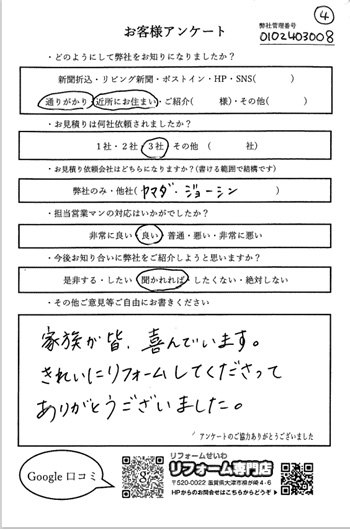 ④
お客様アンケート
弊社管理番号
0102403008
・どのようにして弊社をお知りになりましたか？
新聞折込・リビング新聞・ポストイン・HP・SNS(　　　)
通りがかり・近所にお住まい・ご紹介(　　　様)・その他(　　　)
・お見積りは何社依頼されましたか？
1社・2社・3社・その他（　　　社）
・お見積り依頼会社はどちらになりますか？(書ける範囲で結構です)
弊社のみ・他社(ヤマダ・ジョーシン)
・担当営業マンの対応はいかがでしたか？
非常に良い・良い・普通・悪い・非常に悪い
・今後お知り合いに弊社をご紹介しようと思いますか？
是非する・したい・聞かれれば・したくない・絶対しない
・その他ご意見等ご自由にお書きください
家族が皆、喜んでいます。
きれいにリフォームしてくださって
ありがとうございました。
アンケートのご協力ありがとうございました
Google 口コミ
リフォームせいわ
リフォーム専門店
〒520-0022 滋賀県大津市柳が崎4-6
HPからのお問合せはこちらからどうぞ